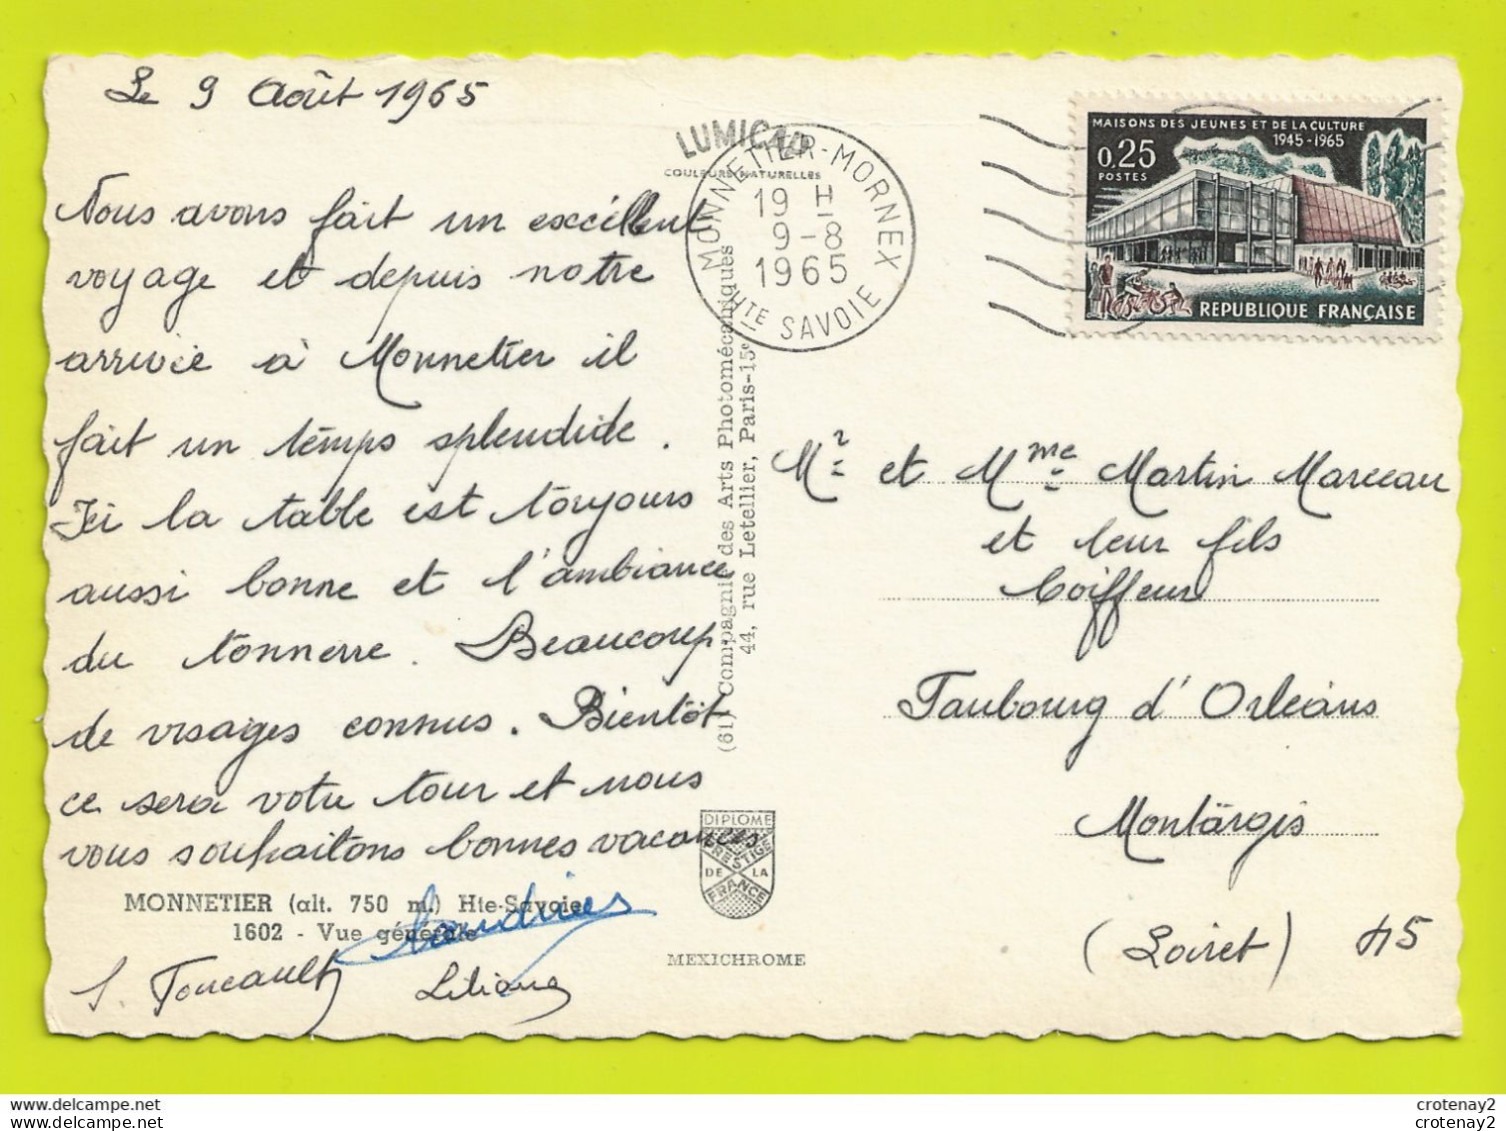 Le 9 Août 1965
Nous avons fait un excéllent
voyage et depuis notre
arrivée à Monnetier il
fait un temps splendide.
Ici la table est toujours
aussi bonne et l'ambiance
du tonnerre. Beaucoup
de visages connus. Bientôt
ce sera votre tour et nous
vous souhaitons bonnes vacances
MONNETIER (alt. 750 m.) Hte-Savoie
1602 - Vue générale
J. Foucault
Liliane
LUMICAP
COULEURS NATURELLES
MONNETIER-MORNEX
19 H
9-8
1965
HTE SAVOIE
(61) Compagnie des Arts Photomécaniques
44, rue Letellier, Paris-15e
DIPLOME
PRESTIGE
DE LA
FRANCE
MEXICHROME
MAISONS DES JEUNES ET DE LA CULTURE
1945-1965
0,25
POSTES
REPUBLIQUE FRANÇAISE
Mr et Mme Martin Marceau
et leur fils
Coiffeur
Faubourg d'Orléans
Montargis
(Loiret) 45
www.delcampe.net
crotenay2
www.delcampe.net
crotenay2